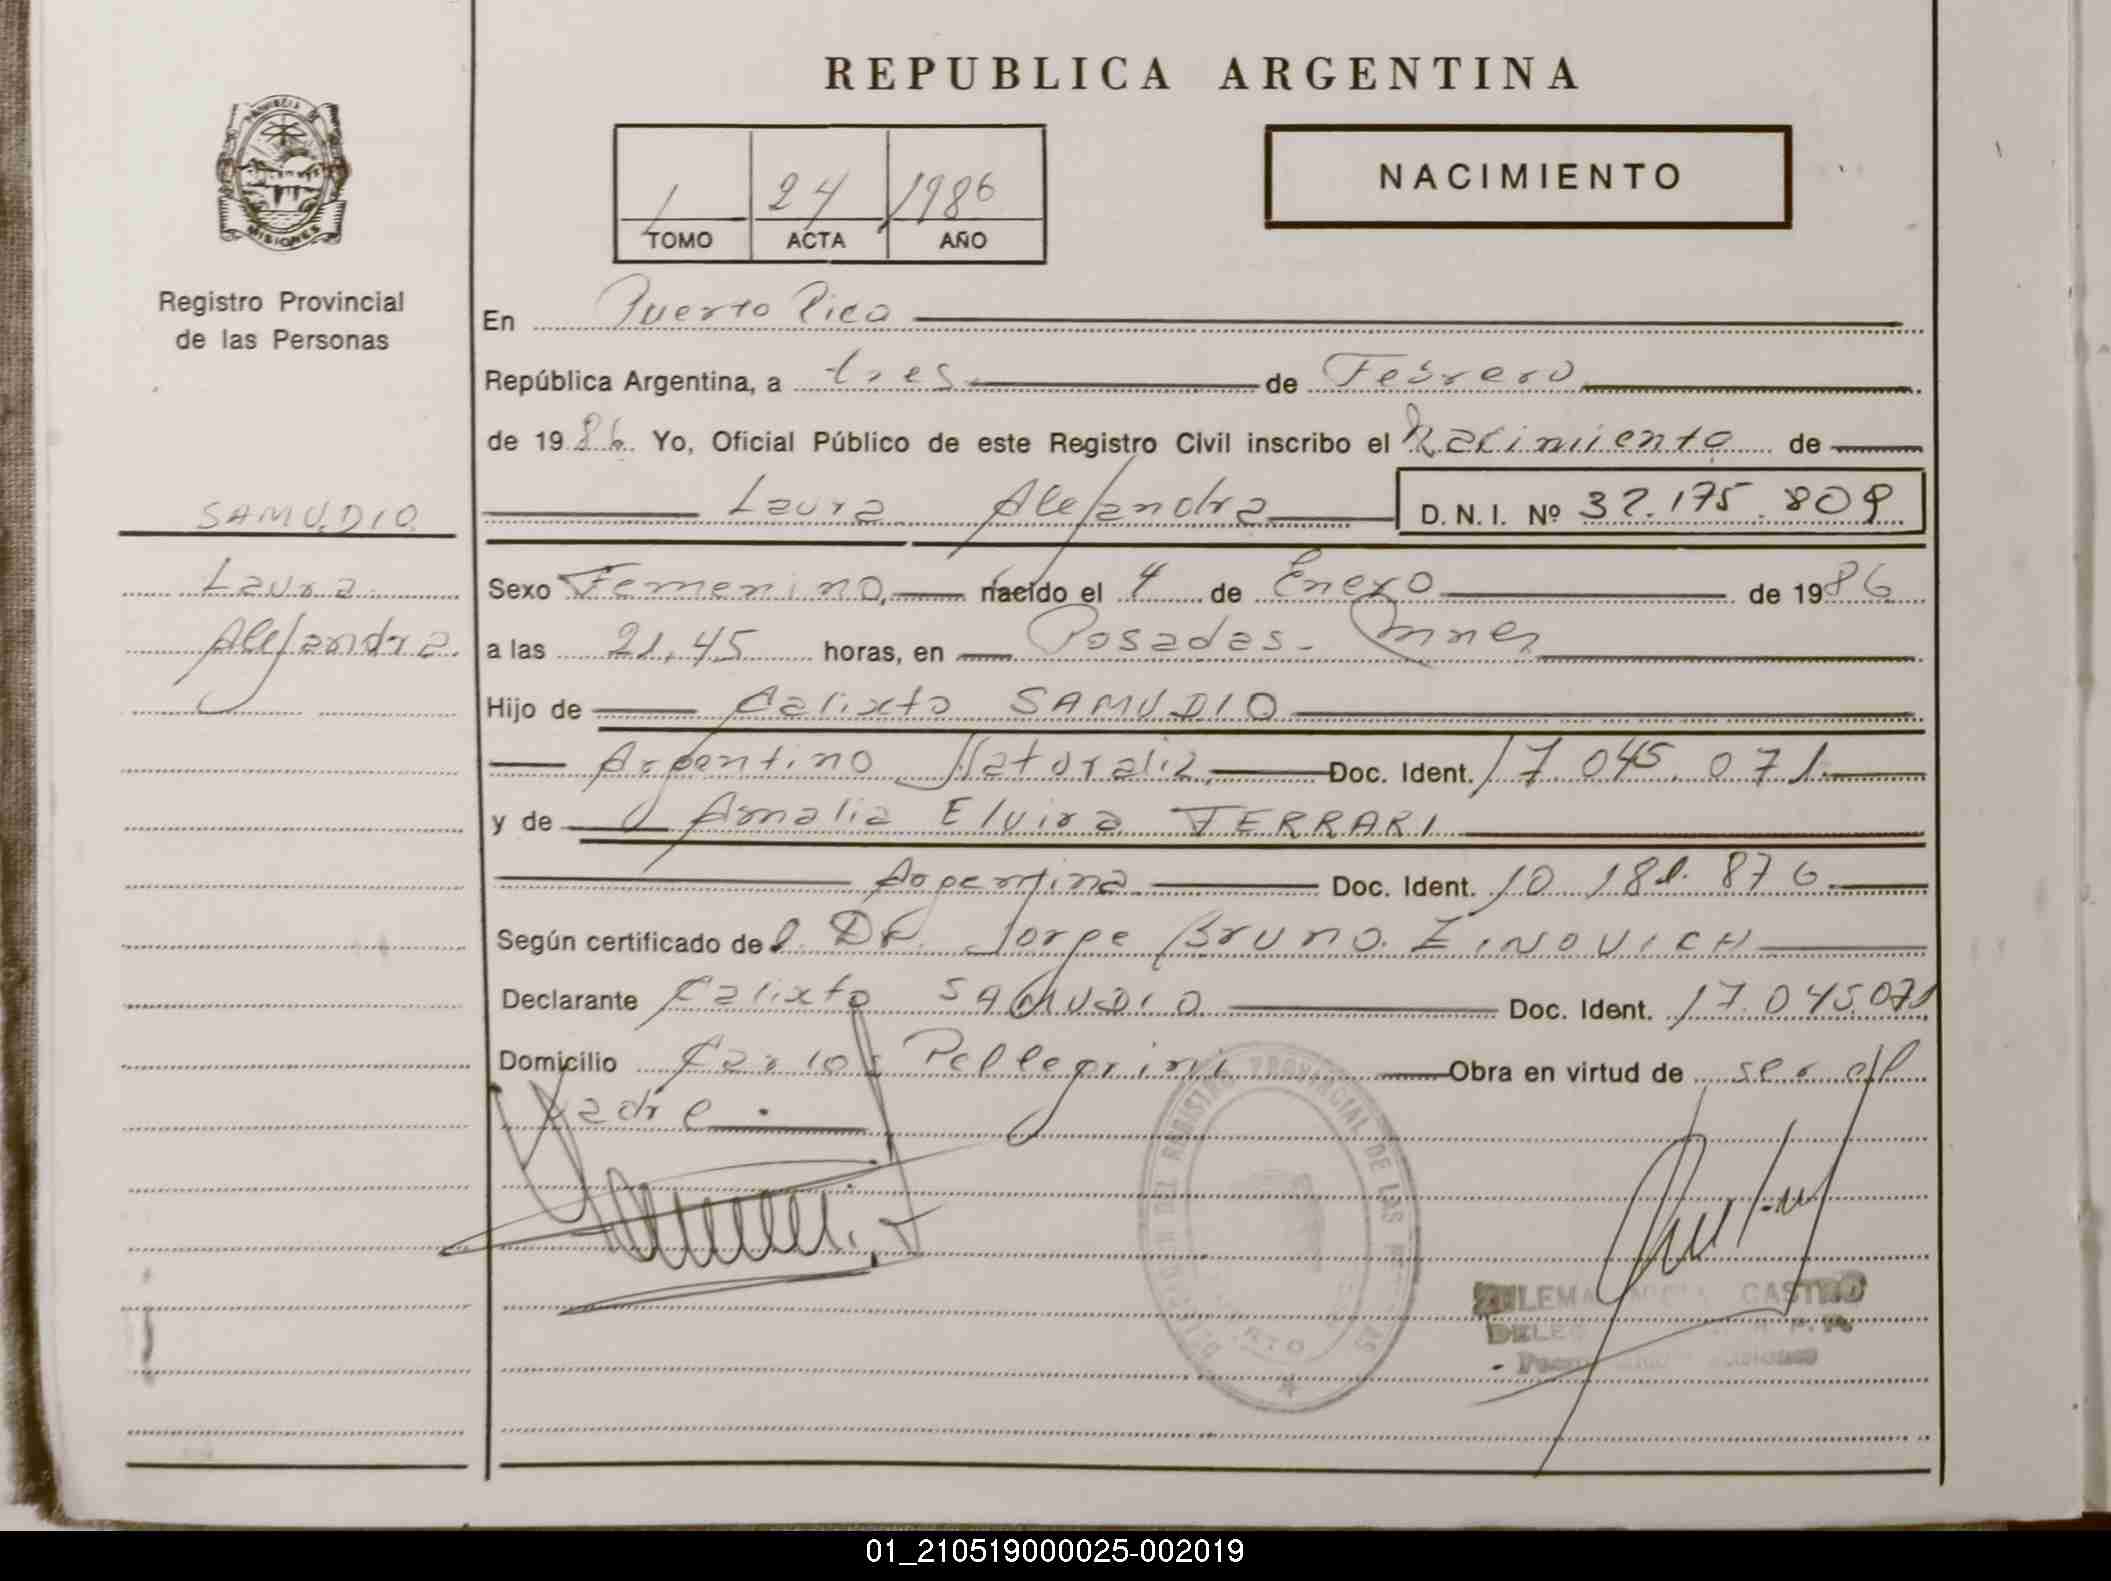 REPUBLICA ARGENTINA
PROVINCIA DE
MISIONES
Registro Provincial
de las Personas
1 24 1986
TOMO ACTA AÑO
NACIMIENTO
En Puerto Rico
República Argentina, a tres de Febrero
de 1986. Yo, Oficial Público de este Registro Civil inscribo el Nacimiento de
Laura Alejandra D. N. I. Nº 32.175.809
SAMUDIO
Laura
Alejandra
Sexo Femenino, nacido el 4 de Enero de 1986
a las 21,45 horas, en Posadas- Mnes
Hijo de Calixto SAMUDIO
Argentino Naturaliz. Doc. Ident. 17.045.071
y de Amalia Elvira FERRARI
Argentina Doc. Ident. 10.181.876
Según certificado del Dr. Jorge Bruno ZINOVICH
Declarante Calixto SAMUDIO Doc. Ident. 17.045.071
Domicilio Carlos Pellegrini Obra en virtud de ser el
Padre.
DEL REGISTRO PROVINCIAL DE LAS
ZULEMA CASTRO
01_210519000025-002019